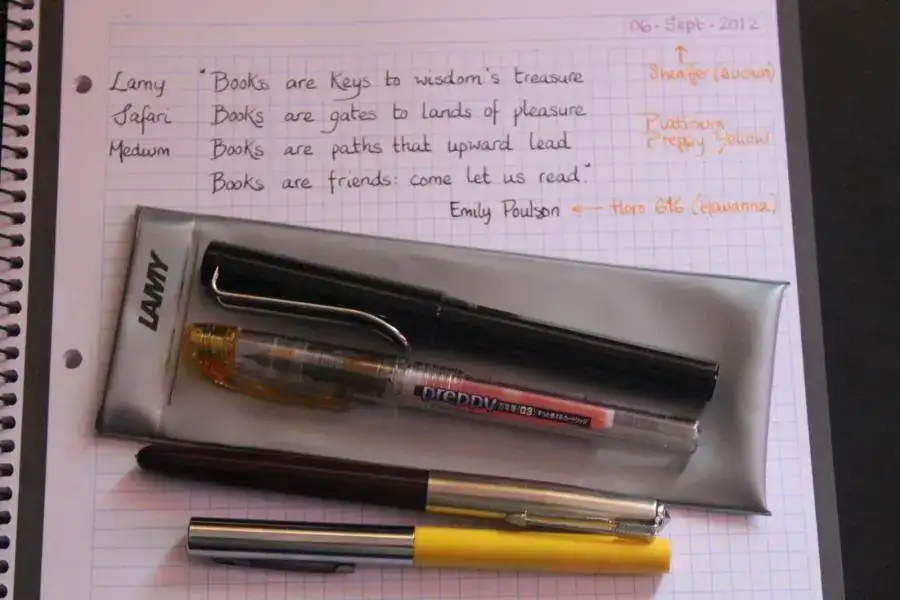 06-Sept-2012
Lamy "Books are keys to wisdom's treasure
Safari Books are gates to lands of pleasure
Medium Books are paths that upward lead
Books are friends: come let us read."
Emily Poulson ← Hero 616
Platinum
Preppy Yellow
LAMY
preppy